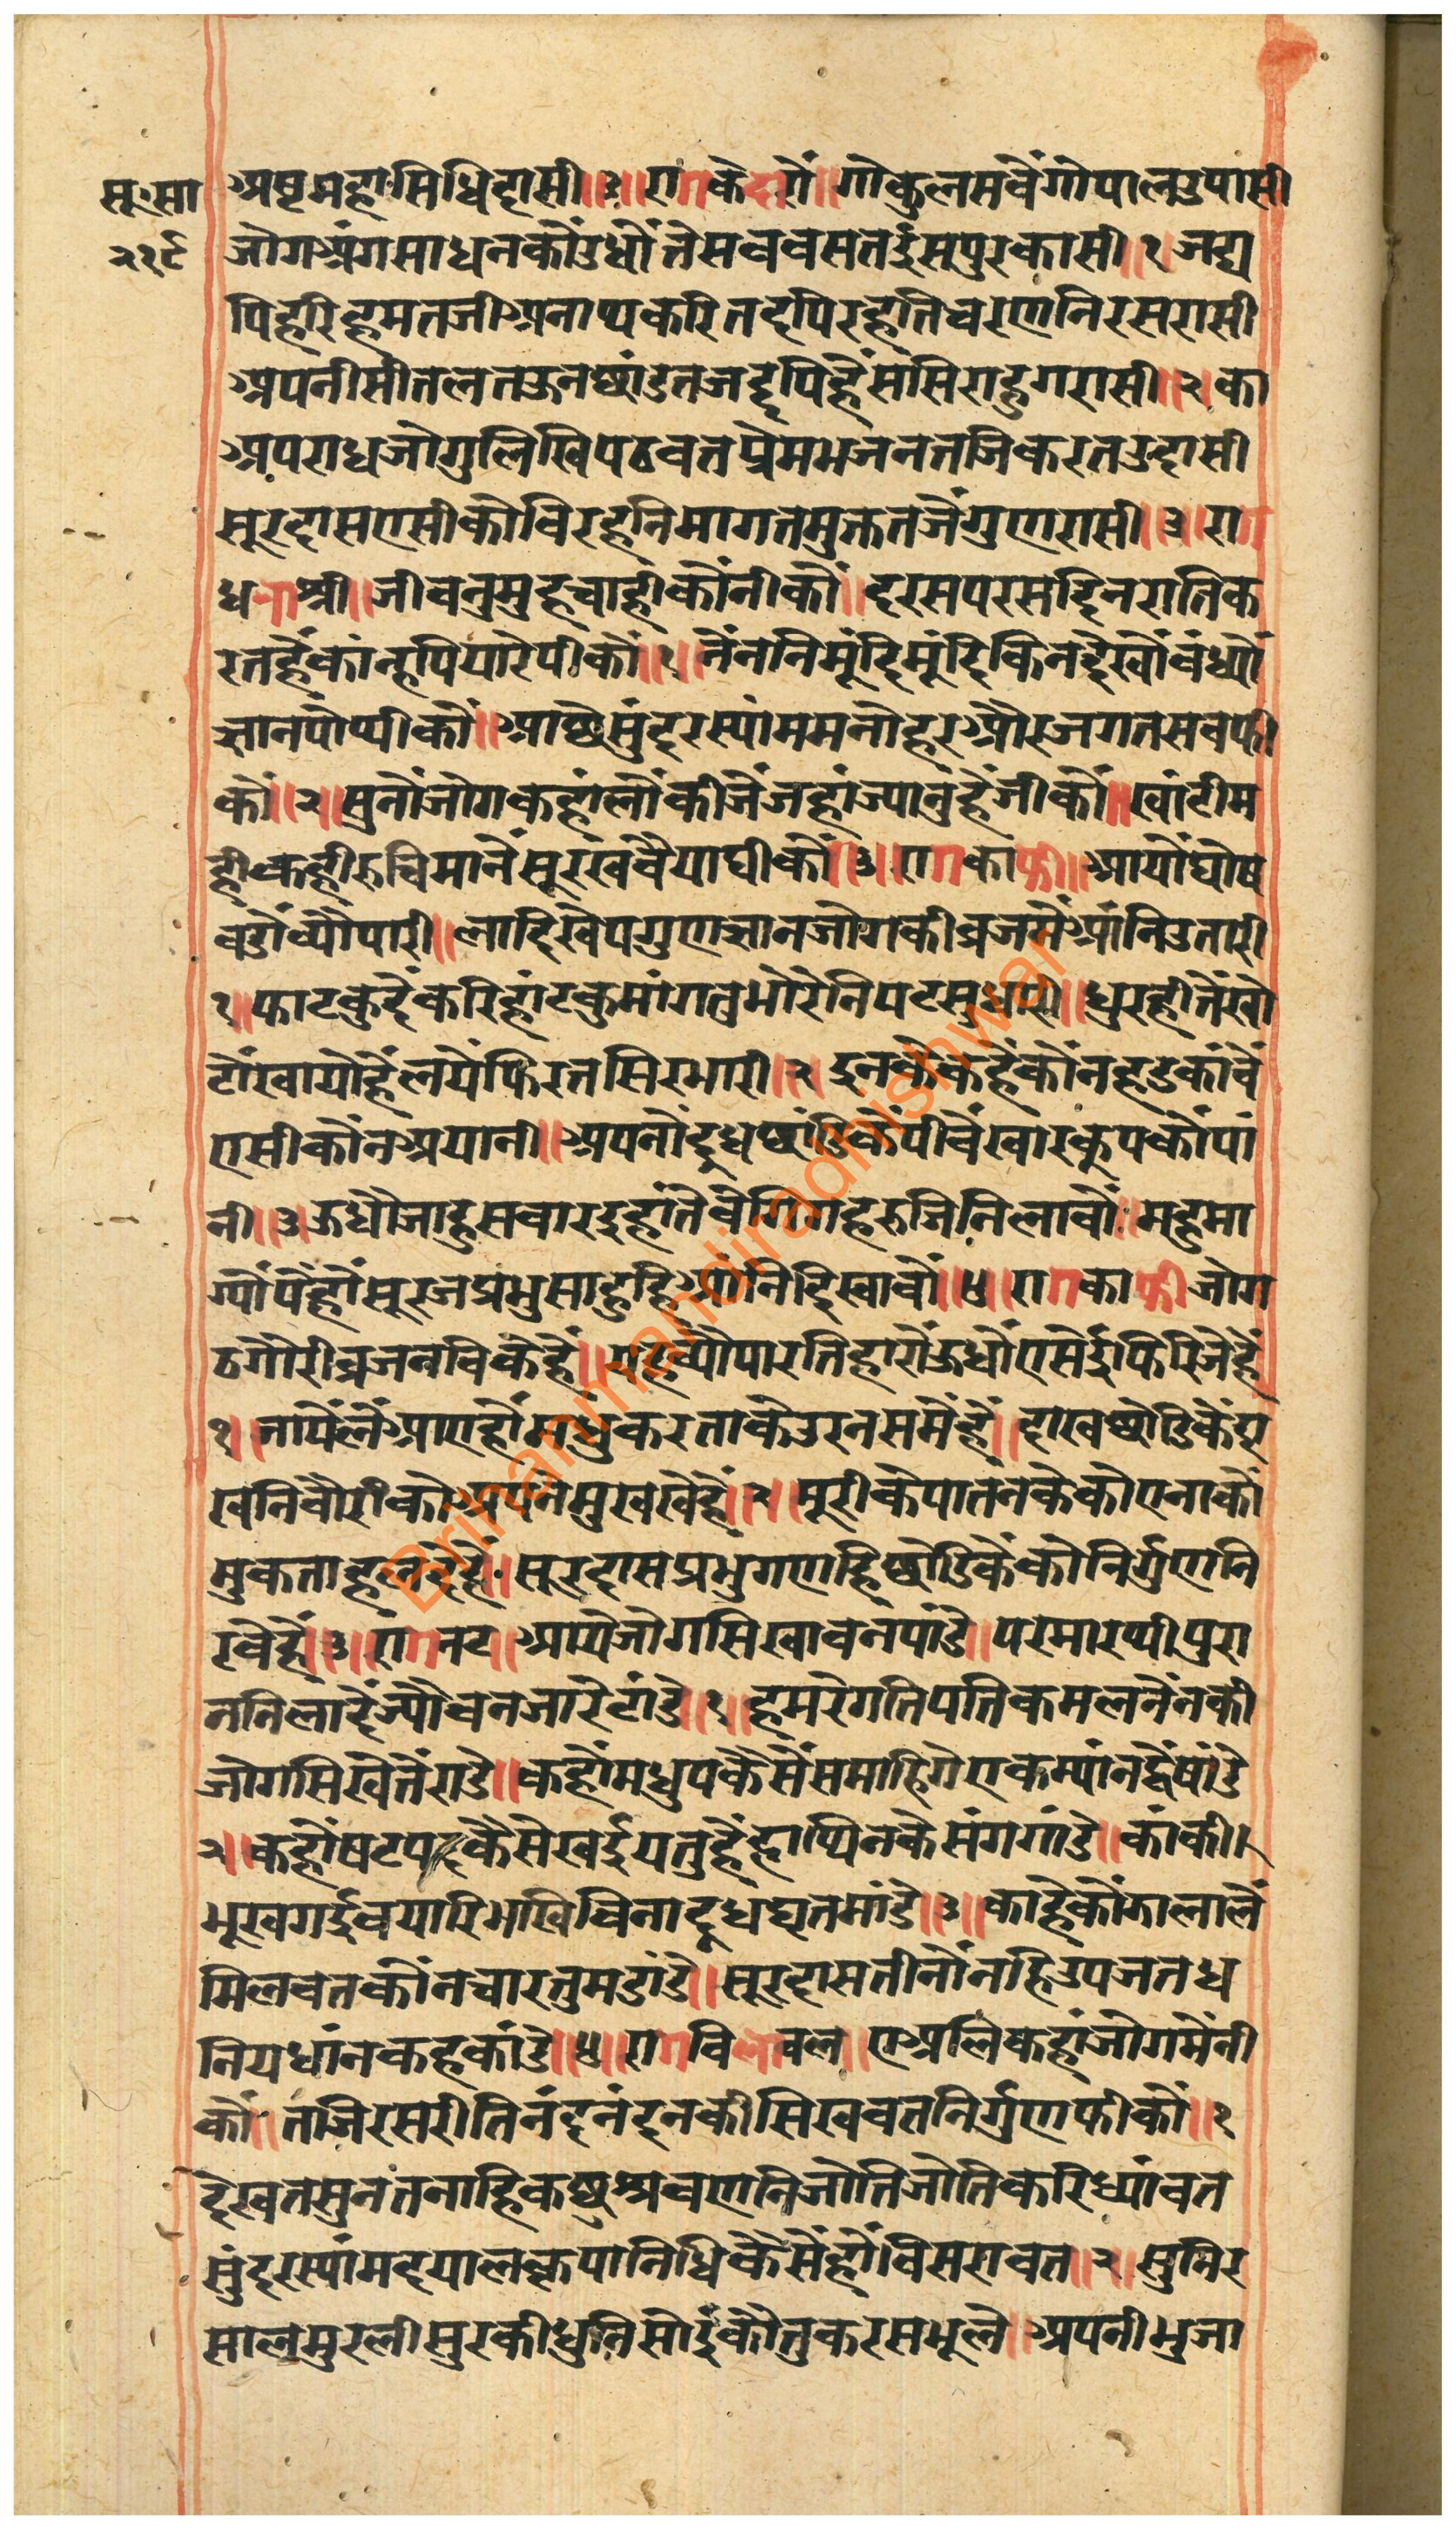 सू.सा
२१९
अष्टमहासिधिदासी॥३॥रागकेदारौं॥गोकुलसवैंगोपालउपासी
जोगअंगसाधनकौंउधौंतेसववसतईंसपुरकासी॥१जद्य
पिहरिहमतजीअनाथकरितदपिरहतिचरणनिरसरासी
अपनीसीतलतऊनछांडतजद्दपिहैंससिराहुगरासी॥२॥का
अपराधजोगुलिखिपठवतप्रेमभजनतजिकरतउदासी
सूरदासएसीकोविरहनिमागतमुक्ततजैंगुणरासी॥३॥राग
धनाश्री॥जीवनुमुहचाहीकौंनीकौं॥दरसपरसदिनरातिक
रतहैंकांन्हपियारेपीकौं॥१॥नैंननिमूंदिमूंदिकिनदेखौंवंध्यौं
ज्ञानपोथीकौं॥आछेसुंदरस्यांममनोहरऔरजगतसवफी
कौं॥२॥सुनौंजोगकहांलौंकीजैंजहांज्यानुंहैंजीकौं॥खांटीम
हीकहीरुचिमानैंसूरखवैयाघीकौं॥३॥रागकाफी॥आयौंघोष
वडौंव्यौपारी॥लादिखेपगुणज्ञानजोगकीव्रजमैंआंनिउतारी
१॥फाटकुदैंकरिहांटकुमांगतुभोरेंनिपटसुधारी॥धुरहीतेंखो
टौंखायोहैंलयेंफिरतसिरभारी॥२॥इनकेंकहैंकौंनहडकांवैं
एसीकौंनअयानी॥अपनौंदूधछांडिकैंपीवैंखारकूपकौंपां
नी॥३॥ऊधौजाहुसवारइहांतेवेगिगहरुजिनिलावौं॥महुमा
ग्यौंपैंहौंसूरजप्रभुसाहुहिआंनिदिखावौं॥४॥रागकाफीजोग
ठगोरीव्रजनविकेहैं॥यहव्यौपारतिहारौंऊधौंएसेईफिरिजैहैं
१॥जापैंलैंआएहौंमधुकरताकेउरनसमैंहैं॥दाखछोडिकैंए
खनिवौरीकोअपनेमुखखैहैं॥२॥मूरीकेपातनकेकोएनाकौं
मुकताहलदैहैं॥सूरदासप्रभुगणहिछोडिकैंकोनिर्गुणनि
रवैहैं॥३॥रागनट॥आयेजोगसिखावनपांडे॥परमारथीपुरा
ननिलादैंज्यौवनजारेटांडे॥१॥हमरेगतिपतिकमलनैंनकी
जोगसिखेतेंरांडे॥कहौंमधुपकैसैंसमाहिगेएकम्यांनद्वैषांडे
२॥कहौंषटपदकैसेखईयतुहैंहाथिनकेसंगगांडे॥कांकी।
भूखगईवयारिभखिविनादूधघृतमांडे॥३॥काहेकौंझालालैं
मिलवतकौंनचारतुमडांडे॥सूरदासतीनौंनहिउपजतध
नियधांनकहकांडे॥४॥रागविलावल॥एअलिकहांजोगमेंनी
कौं॥तजिरसरीतिनंदनंदनकीसिखवतनिर्गुणफीकौं॥१
देखतसुनंतनाहिकछुश्रवणनिजोतिजोतिकरिध्यांवत
सुंदरस्यांमदयालकृपानिधिकैसैंहौंविसरावत॥२॥सुनिर
सालमुरलीसुरकीधुनिसोईकौतुकरसभूले॥अपनीभुजा
Brihanmandiradhishwar